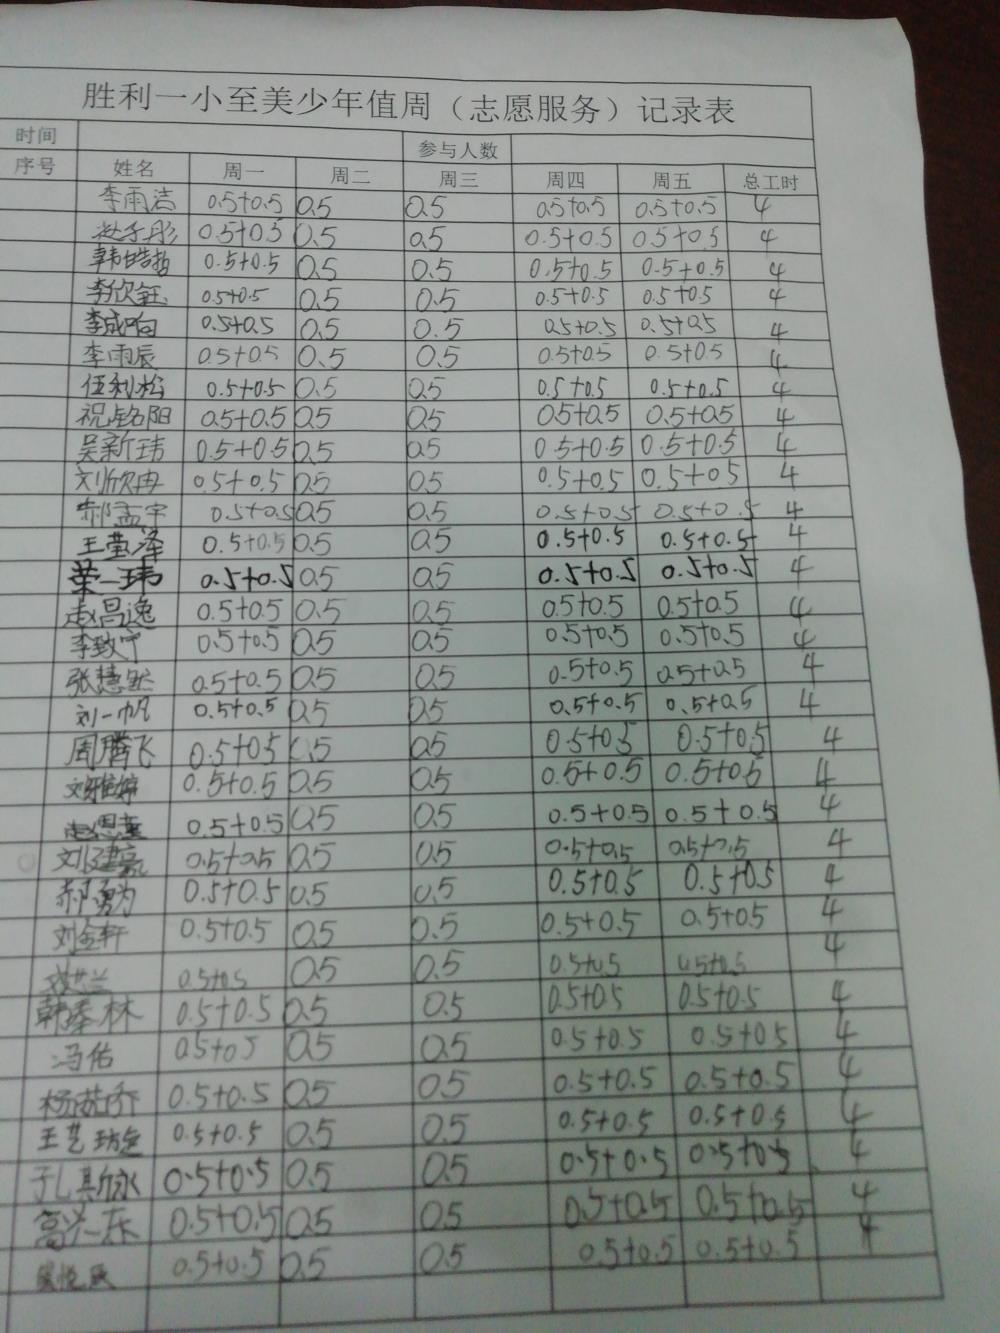 胜利一小至美少年值周（志愿服务）记录表
时间 参与人数
序号 姓名 周一 周二 周三 周四 周五 总工时
李雨洁 0.5+0.5 0.5 0.5 0.5+0.5 0.5+0.5 4
赵子彤 0.5+0.5 0.5 0.5 0.5+0.5 0.5+0.5 4
韩皓哲 0.5+0.5 0.5 0.5 0.5+0.5 0.5+0.5 4
李欣钰 0.5+0.5 0.5 0.5 0.5+0.5 0.5+0.5 4
李成响 0.5+0.5 0.5 0.5 0.5+0.5 0.5+0.5 4
李雨辰 0.5+0.5 0.5 0.5 0.5+0.5 0.5+0.5 4
伍利松 0.5+0.5 0.5 0.5 0.5+0.5 0.5+0.5 4
祝铭阳 0.5+0.5 0.5 0.5 0.5+0.5 0.5+0.5 4
吴新玮 0.5+0.5 0.5 0.5 0.5+0.5 0.5+0.5 4
刘欣冉 0.5+0.5 0.5 0.5 0.5+0.5 0.5+0.5 4
郝孟宇 0.5+0.5 0.5 0.5 0.5+0.5 0.5+0.5 4
王莹泽 0.5+0.5 0.5 0.5 0.5+0.5 0.5+0.5 4
荣一玮 0.5+0.5 0.5 0.5 0.5+0.5 0.5+0.5 4
赵昌逸 0.5+0.5 0.5 0.5 0.5+0.5 0.5+0.5 4
李致宁 0.5+0.5 0.5 0.5 0.5+0.5 0.5+0.5 4
张慧然 0.5+0.5 0.5 0.5 0.5+0.5 0.5+0.5 4
刘一帆 0.5+0.5 0.5 0.5 0.5+0.5 0.5+0.5 4
周腾飞 0.5+0.5 0.5 0.5 0.5+0.5 0.5+0.5 4
刘雅婷 0.5+0.5 0.5 0.5 0.5+0.5 0.5+0.5 4
赵恩 0.5+0.5 0.5 0.5 0.5+0.5 0.5+0.5 4
刘建豪 0.5+0.5 0.5 0.5 0.5+0.5 0.5+0.5 4
郝勇为 0.5+0.5 0.5 0.5 0.5+0.5 0.5+0.5 4
刘金轩 0.5+0.5 0.5 0.5 0.5+0.5 0.5+0.5 4
兰 0.5+0.5 0.5 0.5 0.5+0.5 0.5+0.5 4
韩奉林 0.5+0.5 0.5 0.5 0.5+0.5 0.5+0.5 4
冯佑 0.5+0.5 0.5 0.5 0.5+0.5 0.5+0.5 4
杨茹乔 0.5+0.5 0.5 0.5 0.5+0.5 0.5+0.5 4
王艺璇 0.5+0.5 0.5 0.5 0.5+0.5 0.5+0.5 4
孔斯咏 0.5+0.5 0.5 0.5 0.5+0.5 0.5+0.5 4
高兴东 0.5+0.5 0.5 0.5 0.5+0.5 0.5+0.5 4
悦 0.5+0.5 0.5 0.5 0.5+0.5 0.5+0.5 4